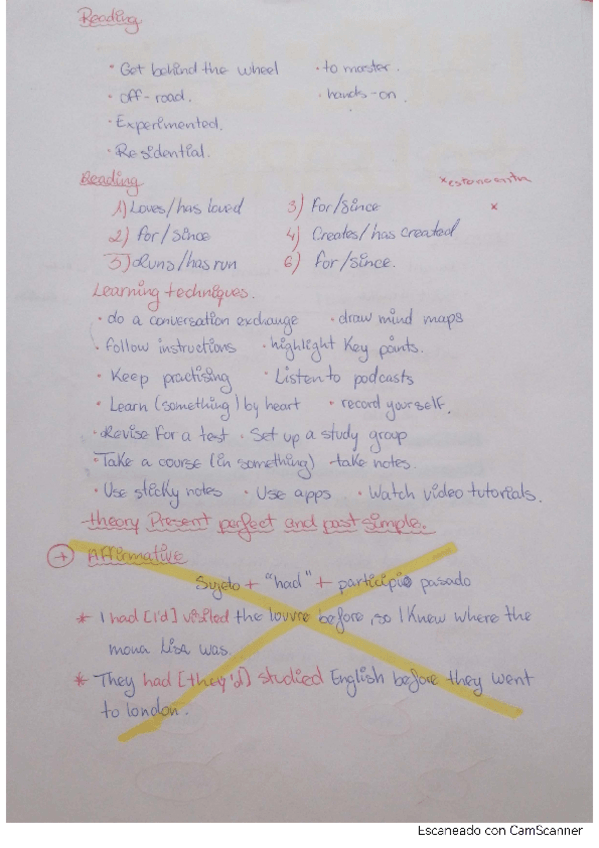 Reading
· Get behind the wheel · to master.
· off-road. · hands-on.
· Experimented.
· Residential.
Reading
1) Loves/has loved 3) For/Since
2) for/since 4) Creates/has created
5) Runs/has run 6) for/since.
Learning techniques.
· do a conversation exchange · draw mind maps
· follow instructions · highlight key points.
· Keep practising · Listen to podcasts
· Learn (something) by heart · record yourself.
· Revise for a test · Set up a study group
· Take a course (in something) · take notes.
· Use sticky notes · Use apps. · Watch video tutorials.
-theory Present perfect and past simple.
+ Affirmative
Sujeto + "had" + participio pasado
* I had [I'd] visited the louvre before, so I knew where the
mona Lisa was.
* They had [they'd] studied English before they went
to london.
Escaneado con CamScanner